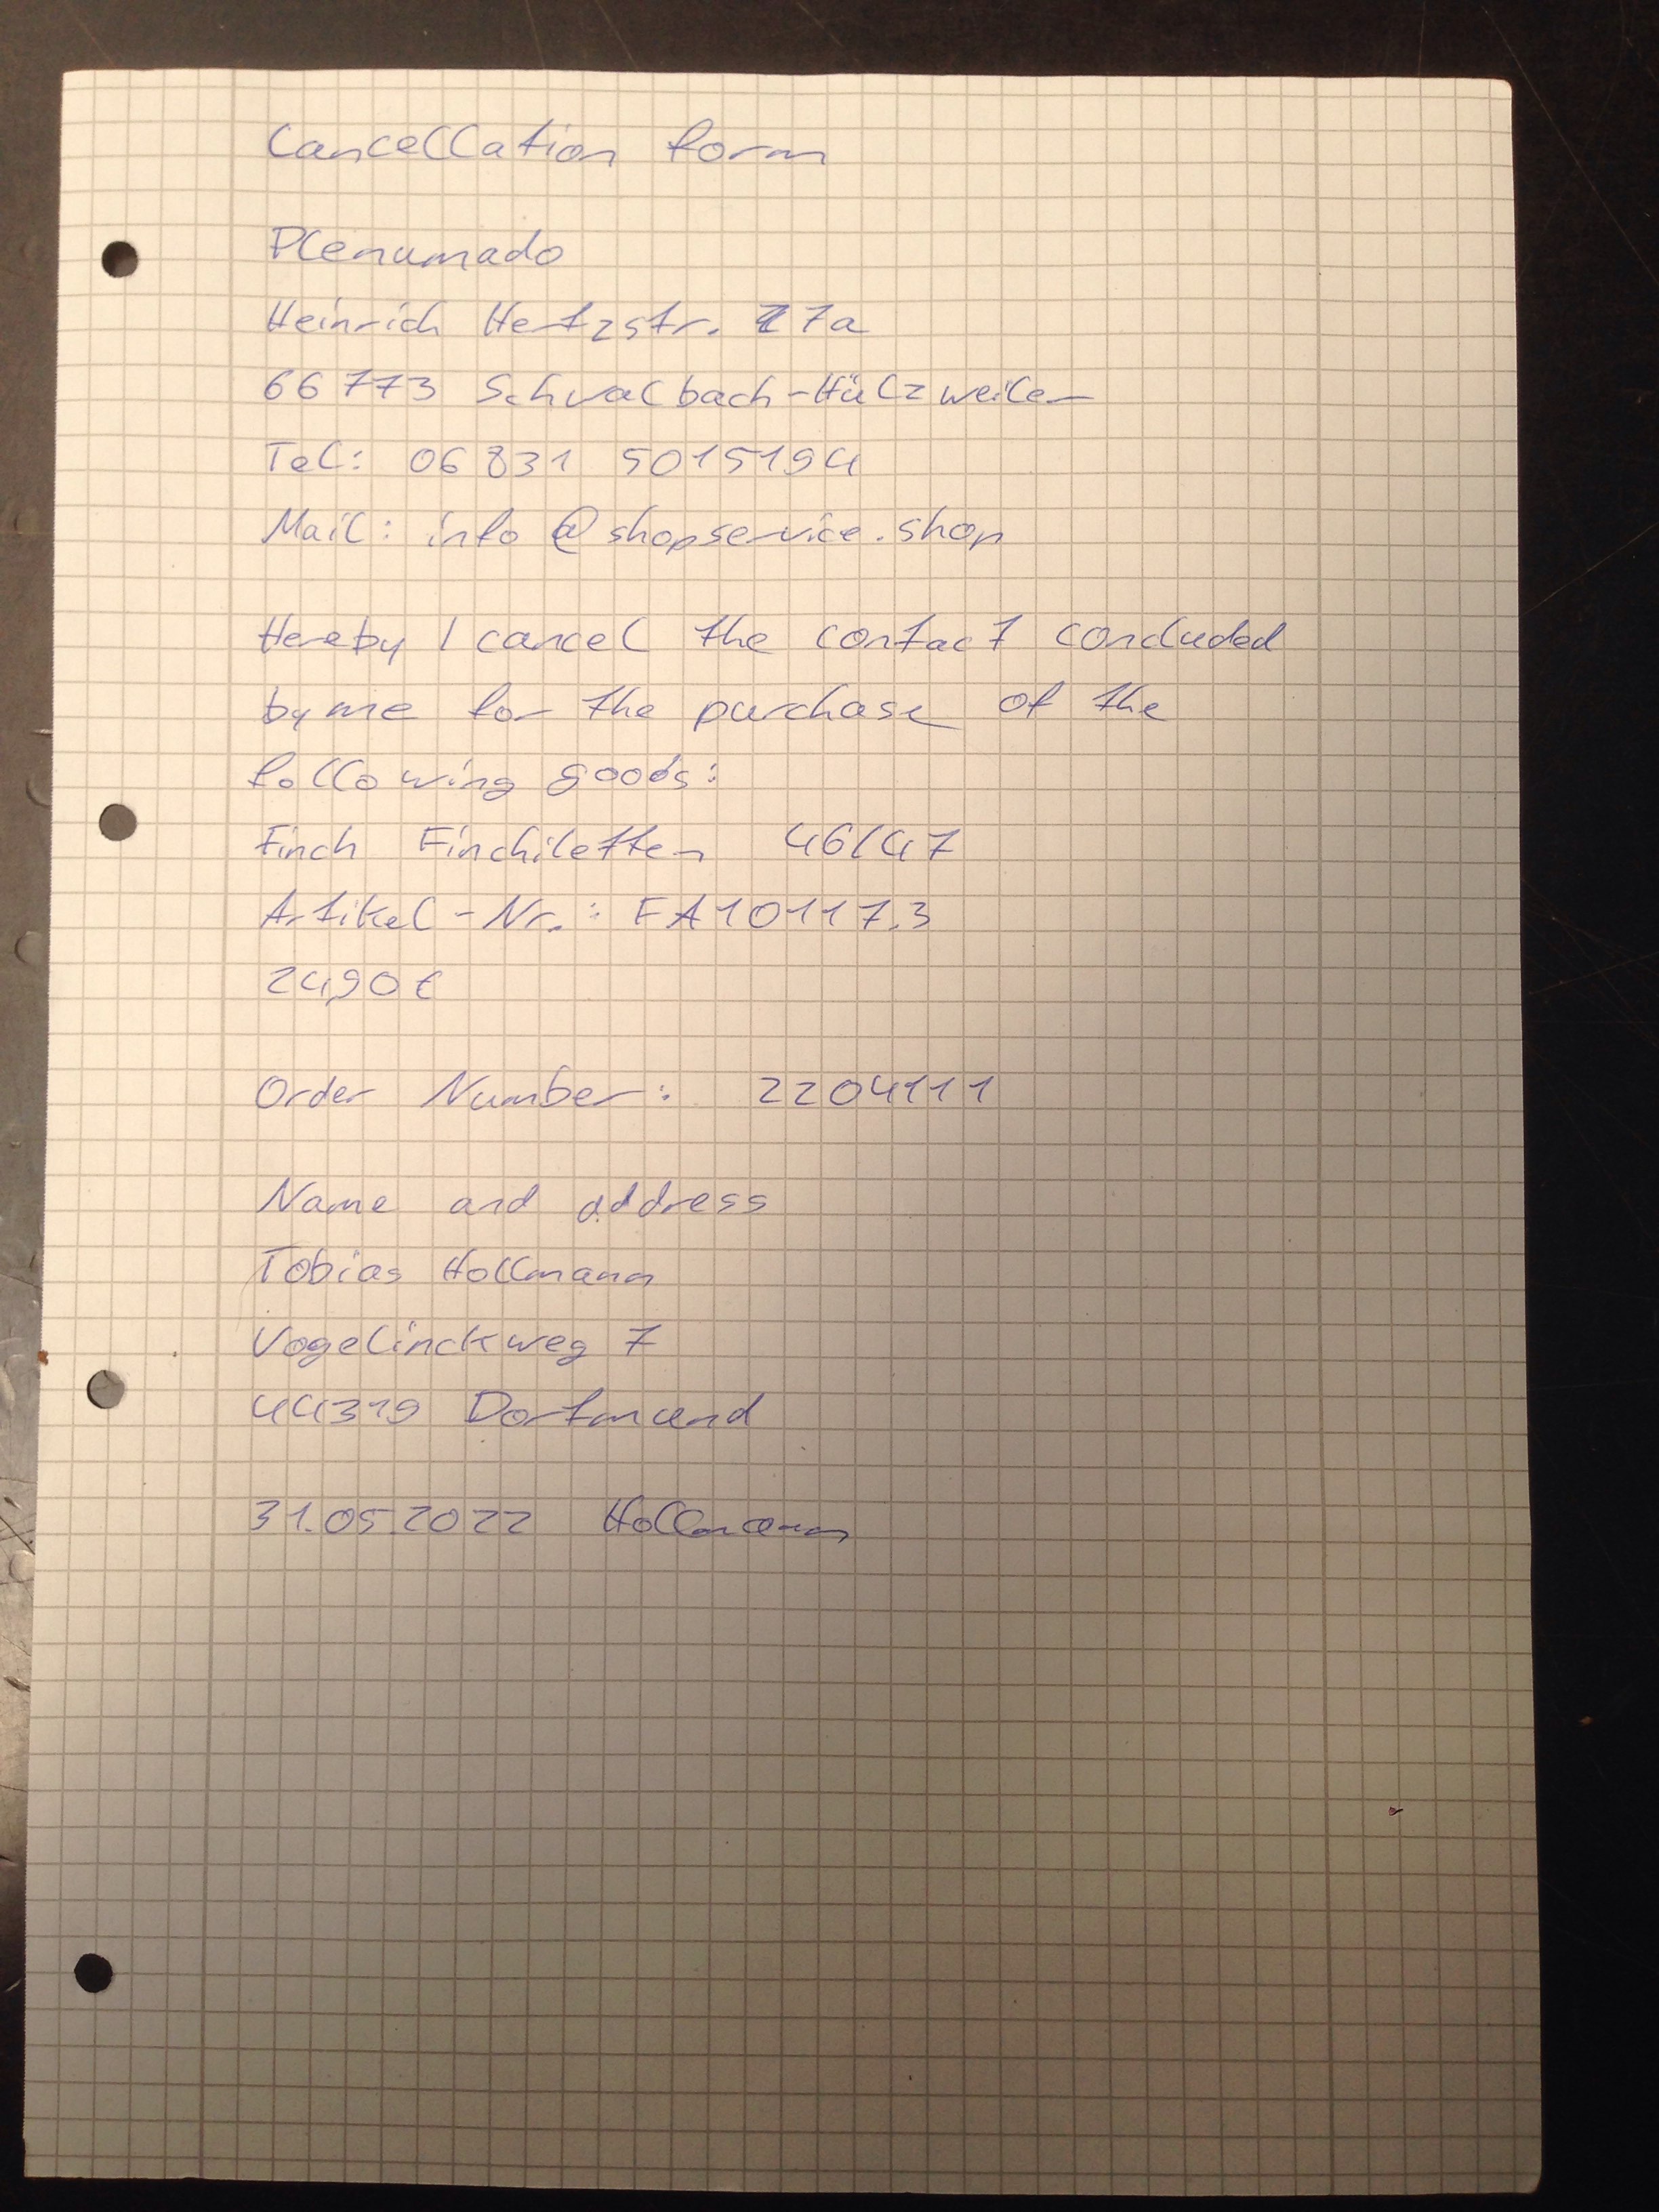 Cancellation form
Plenumado
Heinrich Hertzstr. 17a
66773 Schwalbach-Hülzweiler
Tel: 06831 5015194
Mail: info@shopservice.shop
Hereby I cancel the contact concluded
by me for the purchase of the
following goods:
Finch Finchiletten 46/47
Artikel-Nr.: FA10117.3
24,90€
Order Number: 2204111
Name and address
Tobias Hollmann
Vogelinckweg 7
44319 Dortmund
31.05.2022 Hollmann